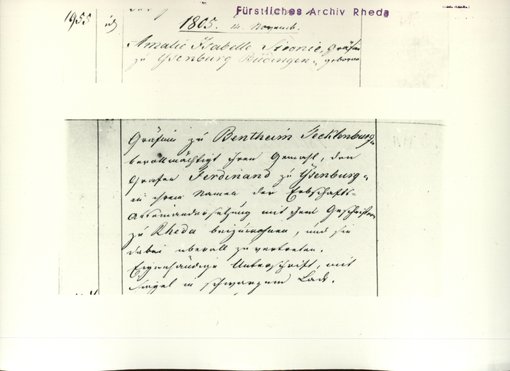 Fürstliches Archiv Rheda
1955
1805. 11. Novemb.
Amalie Isabelle Sidonie, Gräfin
zu Ysenburg Büdingen, geborne
Gräfin zu Bentheim Tecklenburg,
bevollmächtigt ihren Gemahl, den
Grafen Ferdinand zu Ysenburg,
in ihrem Namen der Erbschafts-
Auseinandersetzung mit ihren Geschwistern
zu Rheda beizuwohnen, und sie
dabei überall zu vertreten.
Eigenhändige Unterschrift, mit
Siegel in schwarzem Lack.